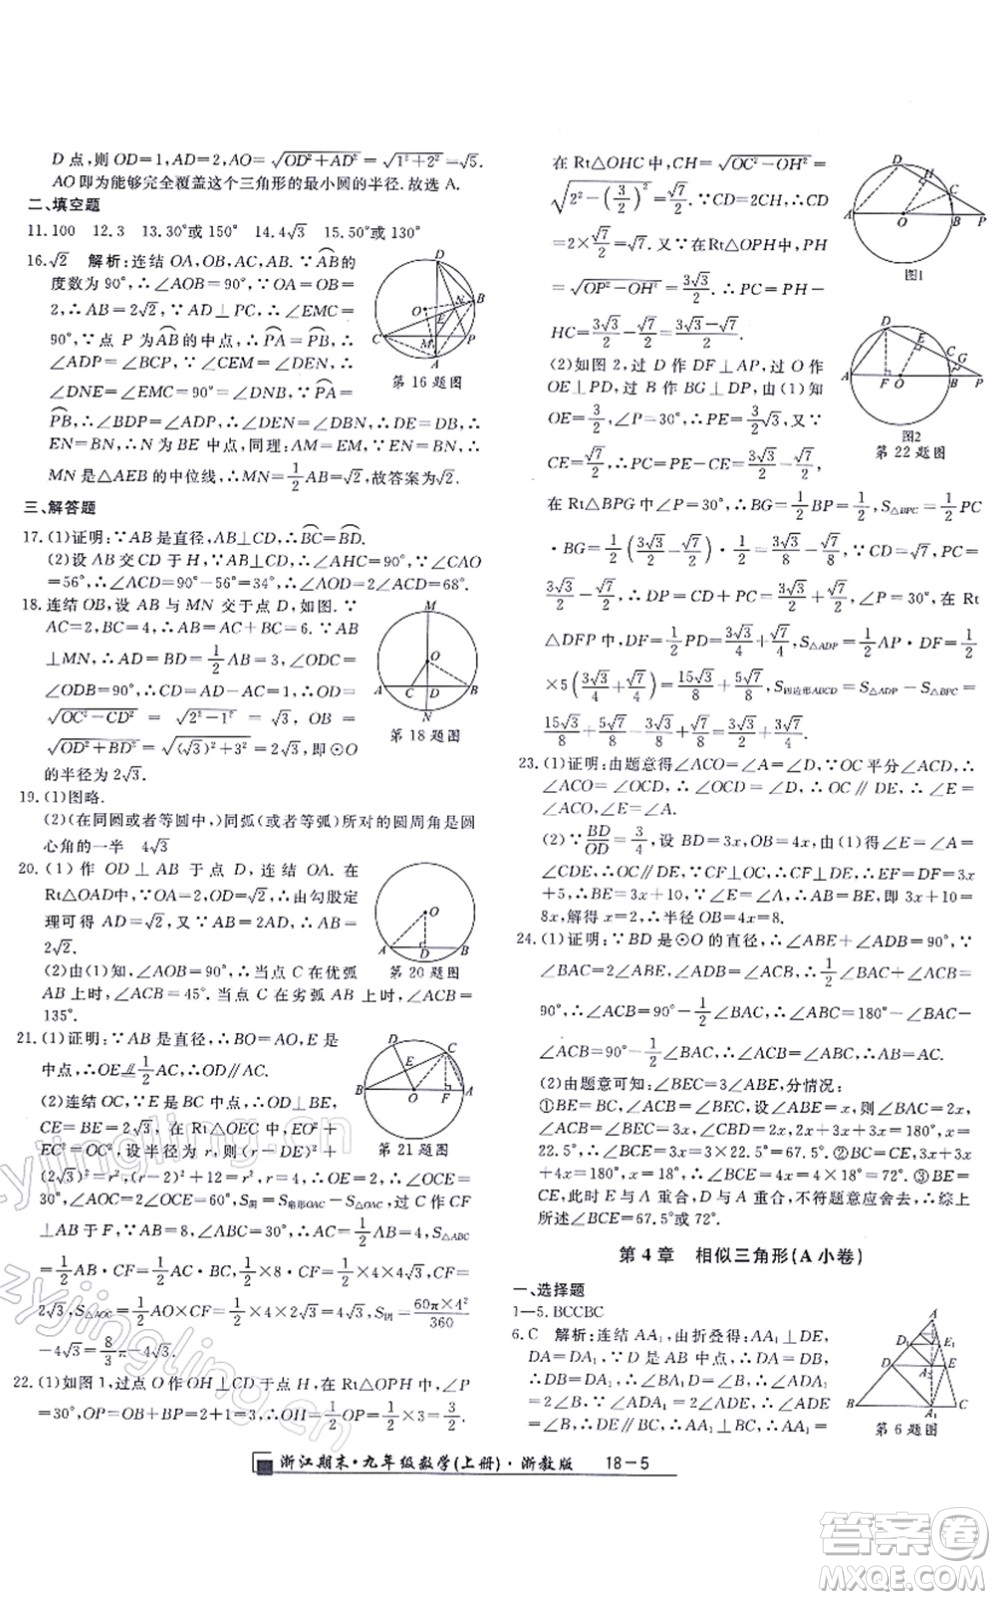 D点,则OD=1,AD=2,AO=√(OD²+AD²)=√(1²+2²)=√5.
AO即为能够完全覆盖这个三角形的最小圆的半径.故选A.
二、填空题
11.100 12.3 13.30°或150° 14.4√3 15.50°或130°
16.√2 解析:连结OA,OB,AC,AB.∵AB的
度数为90°,∴∠AOB=90°,∵OA=OB=
2,∴AB=2√2,∵AD⊥PC,∴∠EMC=
90°,∵点P为AB的中点,∴PA=PB,∴
∠ADP=∠BCP,∵∠CEM=∠DEN,∴
∠DNE=∠EMC=90°=∠DNB,∵PA=
PB,∴∠BDP=∠ADP,∴∠DEN=∠DBN,∴
EN=BN,∴N为BE中点,同理:AM=EM,∴
MN是△AEB的中位线,∴MN=1/2AB=√2,故答案为√2.
第16题图
三、解答题
17.(1)证明:∵AB是直径,AB⊥CD,∴BC=BD.
(2)设AB交CD于H,∵AB⊥CD,∴∠AHC=90°-
56°=34°,∴∠ADC=90°-∠CAD=68°.
18.连结OB,设AB与MN交于点D,如图.∵
AC=2,BC=4,∴AB=AC+BC=6,∵AB
⊥MN,∴AD=BD=1/2AB=3,∴∠ODC=
∠ODB=90°,∴CD=AD-AC=1,∴OD=
√(OC²-CD²)=√(2²-1²)=√3,OB=
√(OD²+BD²)=√((√3)²+3²)=2√3,即⊙O
的半径为2√3.
第18题图
19.(1)图略.
(2)(在同圆或者等圆中,)同弧(或者等弧)所对的圆周角是圆
心角的一半 4√3
20.(1)作OD⊥AB于点D,连结OA.在
Rt△OAD中,∵OA=2,OD=√2,由勾股定
理可得AD=√2,又∵AB=2AD,∴AB=
2√2.
(2)由(1)知,∠AOB=90°,当点C在优弧
AB上时,∠ACB=45°,当点C在劣弧AB上时,∠ACB=
135°.
第20题图
21.(1)证明:∵AB是直径,∴BO=AO,E是
中点,∴OE⫽1/2AC,∴OD∥AC.
(2)连结OC,∵E是BC中点,∴OD⊥BE,
CE=BE=2√3,在Rt△OEC中,EO²+
EC²=OC²,设半径为r,则(r-DE)²+
(2√3)²=r²,(r-2)²+12=r²,r=4,∴∠OCE=
30°,∠AOC=2∠OCE=60°,S阴=S扇形OAC-S△AOC,过C作CF
⊥AB于F,∵AB=8,∠ABC=30°,∴AC=1/2AB=4,S△ABC
=1/2AB·CF=1/2AC·BC,1/2×8·CF=1/2×4·4√3,CF=
2√3,S△AOC=1/2AO×CF=1/2×4×2√3=4√3,S阴=60π×4²/360
-4√3=8/3π-4√3.
第21题图
22.(1)如图1,过点O作OH⊥CD于点H,在Rt△OPH中,∠P
=30°,OP=OB+BP=2+1=3,∴OH=1/2OP=1/2×3=3/2.
在Rt△OHC中,CH=√(OC²-OH²)=
√(2²-(3/2)²)=√7/2.∵CD=2CH,∴CD
=2×√7/2=√7.又∵在Rt△OPH中,PH=
√(OP²-OH²)=3√3/2,∴CP=PH-
HC=3√3/2-√7/2=(3√3-√7)/2.
图1
(2)如图2,过D作DF⊥AP,过O作
OE⊥PD,过B作BG⊥DP,由(1)知
OE=3/2,∠P=30°,∴PE=3√3/2,又∵
CE=√7/2,∴PC=PE-CE=3√3/2-√7/2.
图2
第22题图
在Rt△BPG中∠P=30°,∴BG=1/2BP=1/2,S△BPC=1/2PC
·BG=1/2(3√3/2-√7/2)·1/2=3√3/8-√7/8,∵CD=√7,PC=
3√3/2-√7/2,∴DP=PC+CD=3√3/2+√7/2,∠P=30°,在Rt
△DFP中,DF=1/2PD=3√3/4+√7/4,S△ADP=1/2AP·DF=1/2
×5(3√3/4+√7/4)=15√3/8+5√7/8,S四边形ABCD=S△ADP-S△BPC=
15√3/8+5√7/8-3√3/8+√7/8=3√3/2+3√7/4.
23.(1)证明:由题意得∠ACO=∠A=∠D,∵OC平分∠ACD,∴
∠ACO=∠OCD,∴∠A=∠OCD,∴OC∥DE,∴∠E=
∠ACO=∠A,∴∠E=∠A.
(2)∵BD/OD=3/4,设BD=3x,OB=4x,由(1)得∠E=∠A=
∠CDE,∴CE=CD,∵CF⊥OC,∴CF⊥DE,∴EF=DF=3x
+5,∴BE=3x+10,∵AB=BE,∴AB=BE,即3x+10=
8x,解得:x=2,∴半径OB=4x=8.
24.(1)证明:∵BD是⊙O的直径,∴∠ABE+∠ADB=90°,∵
∠BAC=2∠ABE,∴∠ADB=∠ACB,∴∠ACB+1/2∠BAC=
90°,∴∠ACB=90°-1/2∠BAC,∴∠ABC=180°-∠BAC-
∠ACB=90°-1/2∠BAC=∠ACB,∴AB=AC.
(2)由题意可知:∠BEC=3∠ABE,分情况:
①BE=BC,那么∠ACB=∠BEC=3x,∠BAC=2x,∴
∠ABC=3x,∵∠BAC+∠BCA=180°,∴8x=180°,x=
22.5°,∴∠BCE=3x=3×22.5°=67.5°.②BC=CE,3x+3x+
4x=180°,x=18°,∴∠BCE=4x=4×18°=72°.③BE=
CE,此时E与A重合,与D、A重合,不符题意应舍去,∴综上
所述∠BCE=67.5°或72°.
第4章 相似三角形(A小卷)
一、选择题
1—5.BCCBC
6.C 解析:连结AA₁,由折叠得:AA₁⊥DE,
DA=DA₁,∵D是AB中点,∴DA=DB,
∴DB=DA₁,∴∠BA₁D=∠B,∴∠ADA₁
=2∠B,又∵∠ADA₁=2∠ADE,∴∠ADE
=∠B,∴DE∥BC,∴AA₁⊥BC,∴AA₁=2,
第6题图
浙江期末·九年级数学(上册)·浙教版 18-5
zyjingling.cn
zyjingling.cn
答案圈
MXQE.COM